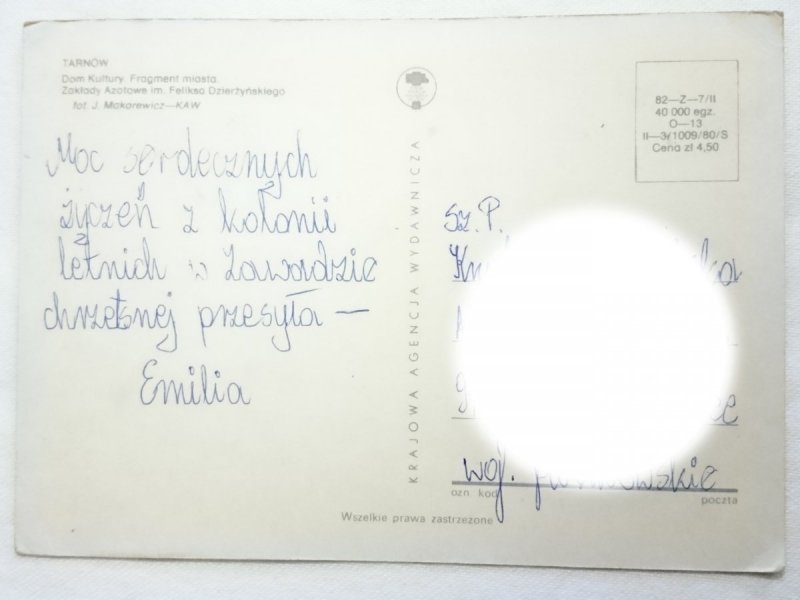 TARNÓW
Dom Kultury. Fragment miasta.
Zakłady Azotowe im. Feliksa Dzierżyńskiego
fot. J. Makarewicz—KAW
Moc serdecznych
życzeń z kolonii
letnich w Zawadzie
chrzetsnej przesyła —
Emilia
KRAJOWA AGENCJA WYDAWNICZA
82—Z—7/II
40 000 egz.
O—13
II—3(1009/80/S
Cena zł 4,50
Sz. P.
woj.
ozn. kod
poczta
Wszelkie prawa zastrzeżone